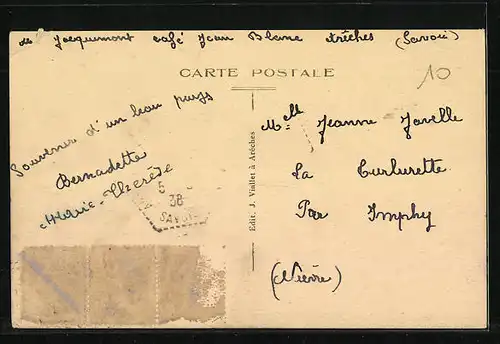 de Jacquemont café Jean Blanc Arêches (Savoie)
CARTE POSTALE
10
Souvenir d'un beau pays
Bernadette
Marie-Therèse
5
38
SAVOIE
Edit. J. Viallet à Arêches
Melle Jeanne Javelle
La Turlurette
Par Imphy
(Nièvre)